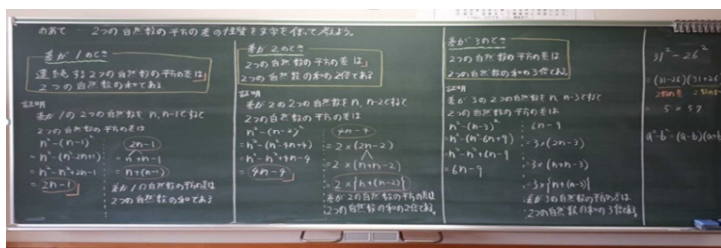 めあて 2つの自然数の平方の差の性質を文字を使って考えよう。
差が1のとき
連続する2つの自然数の平方の差は、
2つの自然数の和である
証明
差が1の2つの自然数をn, n-1とすると
2つの自然数の平方の差は
n²-(n-1)²
=n²-(n²-2n+1)
=n²-n²+2n-1
=2n-1
2n-1
=n+n-1
=n+(n-1)
差が1の自然数の平方の差は
2つの自然数の和である
差が2のとき
2つの自然数の平方の差は、
2つの自然数の和の2倍である
証明
差が2の2つの自然数をn, n-2とすると
2つの自然数の平方の差は
n²-(n-2)²
=n²-(n²-4n+4)
=n²-n²+4n-4
=4n-4
4n-4
=2×(2n-2)
=2×(n+n-2)
=2×{n+(n-2)}
差が2の自然数の平方の差は
2つの自然数の和の2倍である。
差が3のとき
2つの自然数の平方の差は
2つの自然数の和の3倍である
証明
差が3の2つの自然数をn, n-3とすると
2つの自然数の平方の差は
n²-(n-3)²
=n²-(n²-6n+9)
=n²-n²+6n-9
=6n-9
6n-9
=3×(2n-3)
=3×(n+n-3)
=3×{n+(n-3)}
差が3の自然数の平方の差は
2つの自然数の和の3倍である。
31²-26²
=(31-26)(31+26
=5×57
a²-b²=(a-b)(a+b